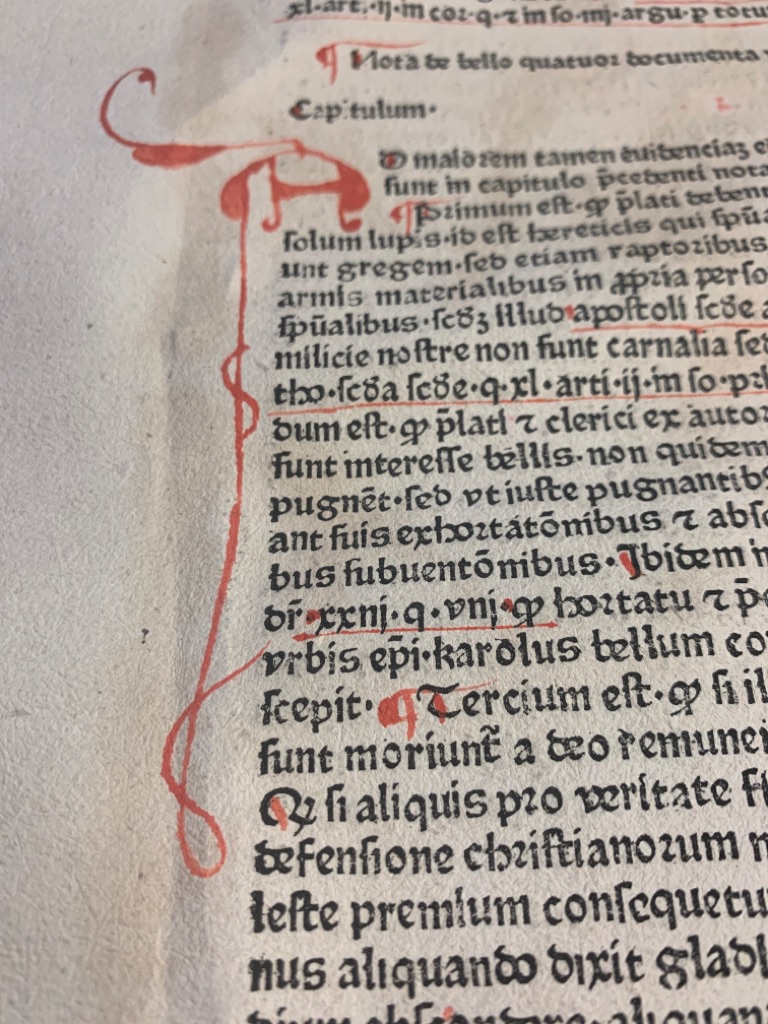 xl·art·ij·in coꝛ·q·⁊ in ſo·iiij·argu·p totu
¶ Nota de bello quatuoꝛ documenta
Capitulum·
AD maioꝛem tamen euidenciaꝫ
ſunt in capitulo p̄cedenti nota
¶ Pꝛimum eſt·ꝙ p̄lati debent
ſolum lupis·id eſt hereticis qui ſpūa
unt gregem·ſed etiam raptoꝛibus
armis materialibus in ꝓpꝛia perſo
ſpūalibus·ſcd̄ꝫ illud apoſtoli ſcd̄e
milicie noſtre non ſunt carnalia ſed
tho·ſcd̄a ſcd̄e·q·xl·arti·ij·in ſo·pꝛi
dum eſt·ꝙ p̄lati ⁊ clerici ex autoꝛ
ſunt intereſſe bellis·non quidem
pugnēt·ſed vt iuſte pugnantibꝰ
ant ſuis exhoꝛtatōnibus ⁊ abſo
bus ſubuentōnibus·Ibidem in
dr̄·xxiij·q·viij·ꝙ hoꝛtatu ⁊ p̄c
vrbis ep̄i·karolus bellum
ſcepit· ¶ Tercium eſt·ꝙ ſi il
ſunt moriunt̄ a deo remunei
Qꝛ ſi aliquis pꝛo veritate fi
defenſione chꝛiſtianoꝛum m
leſte premium conſequetu
nus aliquando dixit gladi
aliquan